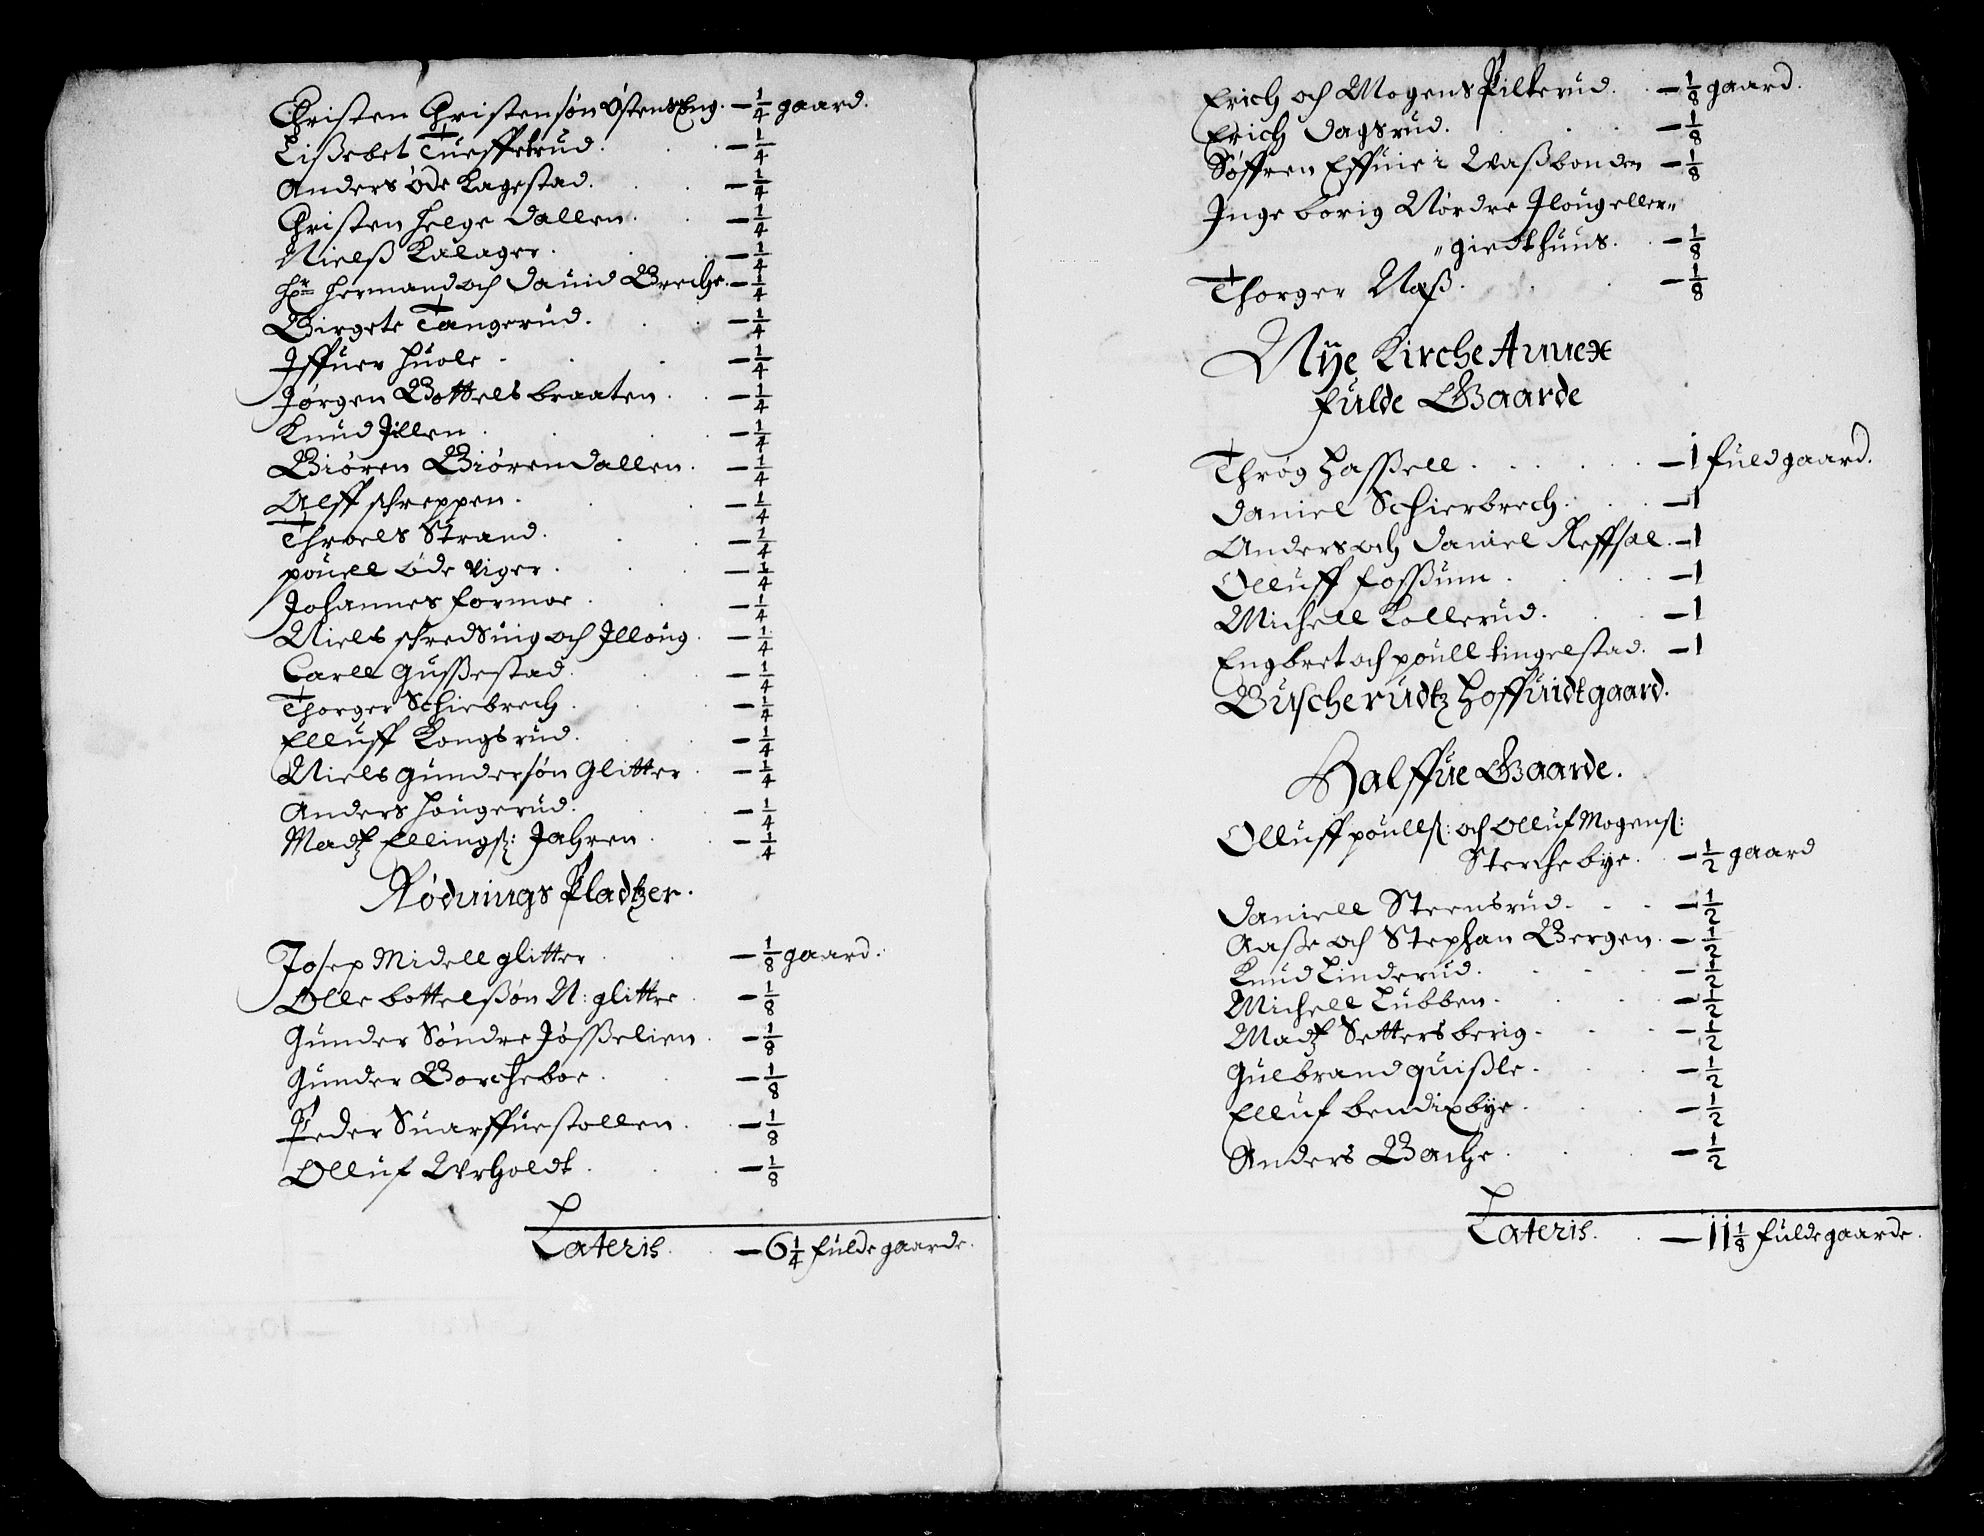 Christen Christensøn Østens Eng. — 1/4 gaard.
Lißebet Tueffterud. — 1/4
Anders Øde Kagestad. — 1/4
Christen Helge dallen. — 1/4
Nielß Kalager. — 1/4
Hr Hermand och Dauid Breche. — 1/4
Birgete Tangerud. — 1/4
Iffuer Huole — 1/4
Jørgen Bottels braaten. — 1/4
Knud Jillen. — 1/4
Biören Biörendallen. — 1/4
Alff schreppen. — 1/4
Throels Strand. — 1/4
pouell øde Viger. — 1/4
Johannes Formoe. — 1/4
Niels schredsuig och Illoug. — 1/4
Carll Gußestad. — 1/4
Thorger Schiebrech. — 1/4
Elluff Kongsrud. — 1/4
Niels Gundersøn Glitter. — 1/4
Anders Hougerud. — 1/4
Madtz Ellingß: Jahren. — 1/4
Rødnings Pladtzer.
Josep Midell glitter — 1/8 gaard.
Olle bottelßøn N: glittre — 1/8
Gunder Søndre Jøßelien. — 1/8
Gunder Borcheboe. — 1/8
Peder Suarffuestollen. — 1/8
Olluf Urholdt. — 1/8
Lateris. — 6 1/4 fulde gaarde.
Erich och Mogens Pilterud. — 1/8 gaard.
Erich Dagsrud. — 1/8
Søffren Effuie i Waßbonden — 1/8
Inge borig Nordre Iloug eller"
"giedthuus. — 1/8
Thorger Naß. — 1/8
Nÿe Kirche Annex
fulde Gaarde
Throg Haßell. — 1 fuld gaard.
Daniel Schierbrech. — 1
Anders och Daniel Reffsal. — 1
Olluff Foßum. — 1
Michell Kollerud. — 1
Engbret och poull tingelstad. — 1
Buscherudtz Hoffuidtgaard.
Halffue Gaarde.
Olluff poullß: och Olluf Mogenß:
Sterchebye. — 1/2 gaard
Daniell Steensrud. — 1/2
Aaße och Stephan Bergen. — 1/2
Knud Linderud. — 1/2
Michell Lubben. — 1/2
Madtz Settersberig. — 1/2
Gulbrand quißle. — 1/2
Elluf bendixbÿe. — 1/2
Anders Bache. — 1/2
Lateris. — 11 1/8 fulde gaarde.